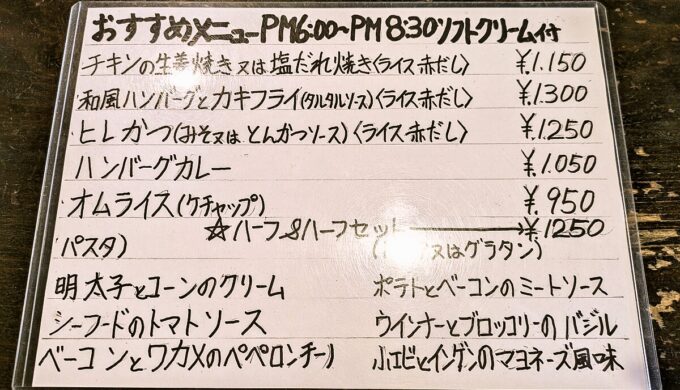 おすすめメニューPM6:00~PM8:30ソフトクリーム付
チキンの生姜焼き又は塩だれ焼き〈ライス赤だし〉 ¥1.150
和風ハンバーグとカキフライ(タルタルソース)〈ライス赤だし〉 ¥1.300
ヒレかつ(みそ又はとんかつソース)〈ライス赤だし〉 ¥.1250
ハンバーグカレー ¥.1.050
オムライス(ケチャップ) ¥.950
☆ハーフ&ハーフセット→¥1250
パスタ) 又はグラタン)
明太子とコーンのクリーム ポテトとベーコンのミートソース
シーフードのトマトソース ウインナーとブロッコリーのバジル
ベーコンとワカメのペペロンチーノ 小エビとインゲンのマヨネーズ風味